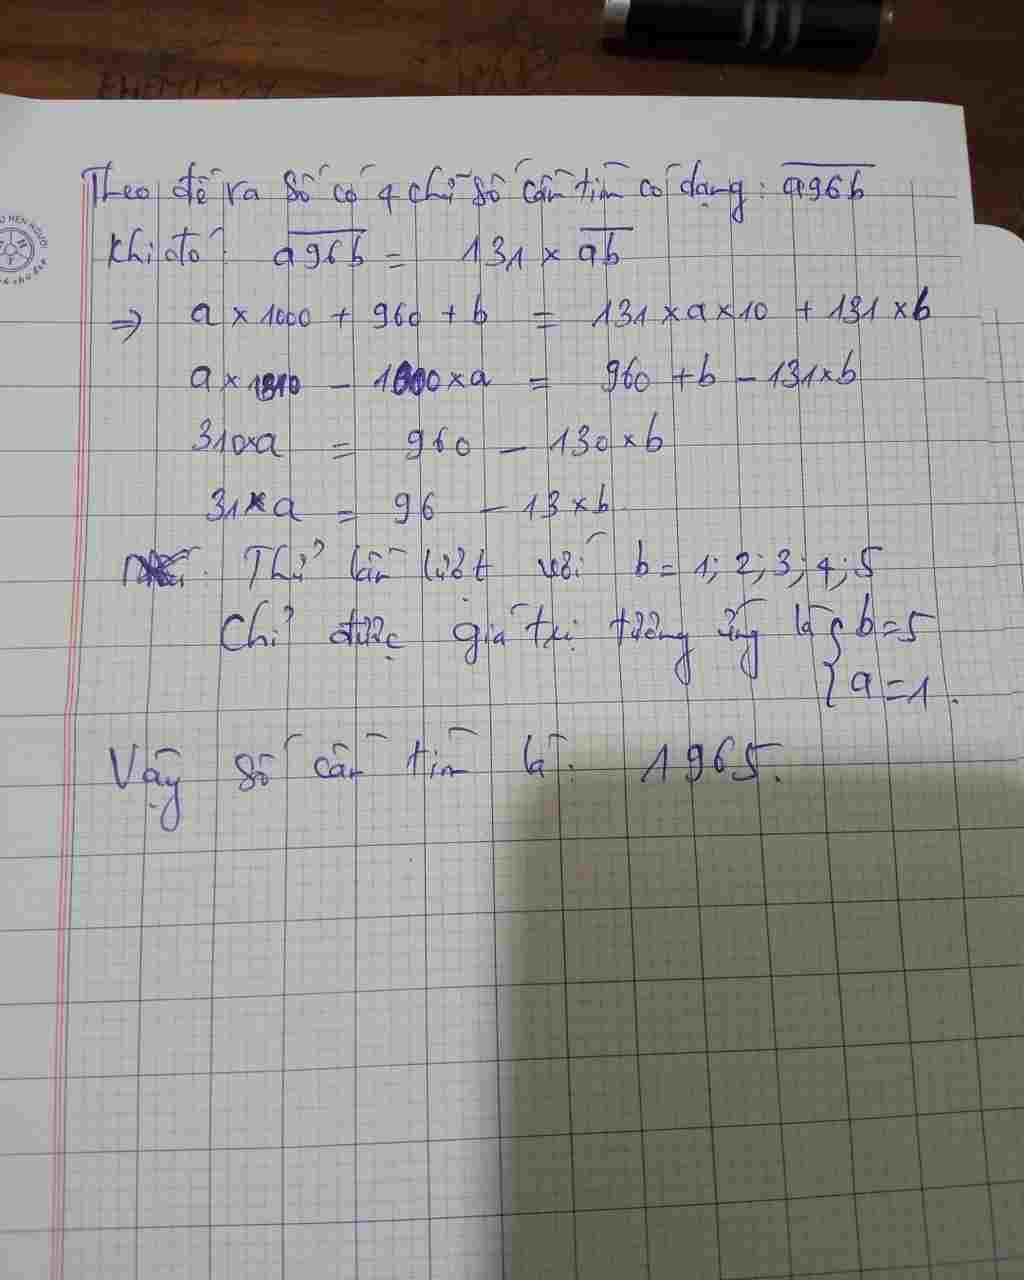 Theo đề ra số có 4 chữ số cần tìm có dạng: a96b
Khi đó: a96b = 131 × ab
=> a × 1000 + 960 + b = 131 × a × 10 + 131 × b
a × 1310 - 1000 × a = 960 + b - 131 × b
310×a = 960 - 130 × b
31×a = 96 - 13 × b
Thử lần lượt với b = 1; 2; 3; 4; 5
Chỉ được giá trị tương ứng là { b = 5
a = 1.
Vậy số cần tìm là: 1965.